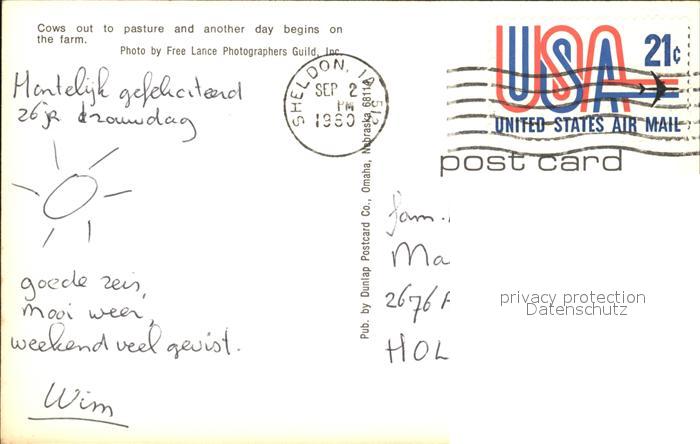 Cows out to pasture and another day begins on
the farm.
Photo by Free Lance Photographers Guild, Inc.
Hartelijk gefeliciteerd
26 jr trouwdag
goede reis,
mooi weer,
weekend veel gevist.
Wim
SHELDON, IA
SEP 2
PM
1980
Pub. by Dunlap Postcard Co., Omaha, Nebraska 68114
USA 21c
UNITED STATES AIR MAIL
post card
fam.
Ma
2676
HOL
privacy protection
Datenschutz